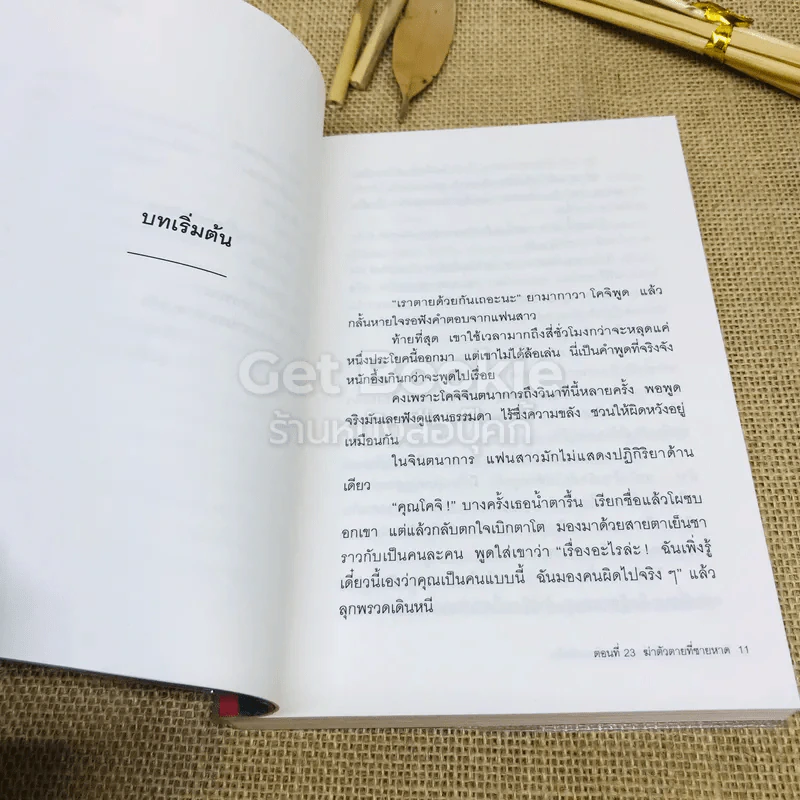 บทเริ่มต้น
“เราตายด้วยกันเถอะนะ” ยามากาวา โคจิพูด แล้ว
กลั้นหายใจรอฟังคำตอบจากแฟนสาว
ท้ายที่สุด เขาใช้เวลามากถึงสี่ชั่วโมงกว่าจะหลุดแค่
หนึ่งประโยคนี้ออกมา แต่เขาไม่ได้ล้อเล่น นี่เป็นคำพูดที่จริงจัง
หนักอึ้งเกินกว่าจะพูดไปเรื่อย
คงเพราะโคจิจินตนาการถึงวินาทีนี้หลายครั้ง พอพูด
จริงมันเลยฟังดูแสนธรรมดา ไร้ซึ่งความขลัง ชวนให้ผิดหวังอยู่
เหมือนกัน
ในจินตนาการ แฟนสาวมักไม่แสดงปฏิกิริยาด้าน
เดียว
“คุณโคจิ !” บางครั้งเธอน้ำตารื้น เรียกชื่อแล้วโผซบ
อกเขา แต่แล้วกลับตกใจเบิกตาโต มองมาด้วยสายตาเย็นชา
ราวกับเป็นคนละคน พูดใส่เขาว่า “เรื่องอะไรล่ะ ! ฉันเพิ่งรู้
เดี๋ยวนี้เองว่าคุณเป็นคนแบบนี้ ฉันมองคนผิดไปจริง ๆ” แล้ว
ลุกพรวดเดินหนี
ตอนที่ 23 ฆ่าตัวตายที่ชายหาด 11
Get Bookie
ร้านหนังสือบุคกี้